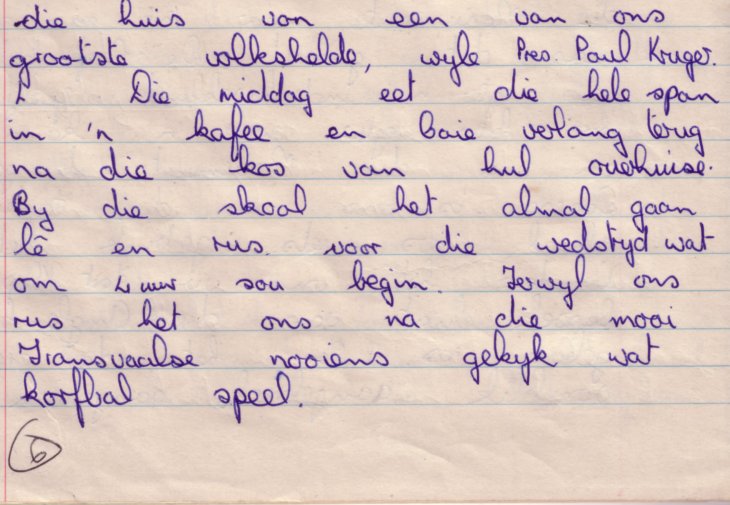 die huis van een van ons
grootste volkshelde, wyle Pres. Paul Kruger.
Die middag eet die hele span
in 'n kafee en baie verlang terug
na die kos van hul ouerhuise.
By die skool het almal gaan
lê en rus voor die wedstryd wat
om 4 uur sou begin. Terwyl ons
rus het ons na die mooi
Transvaalse nooiens gekyk wat
korfbal speel.
6